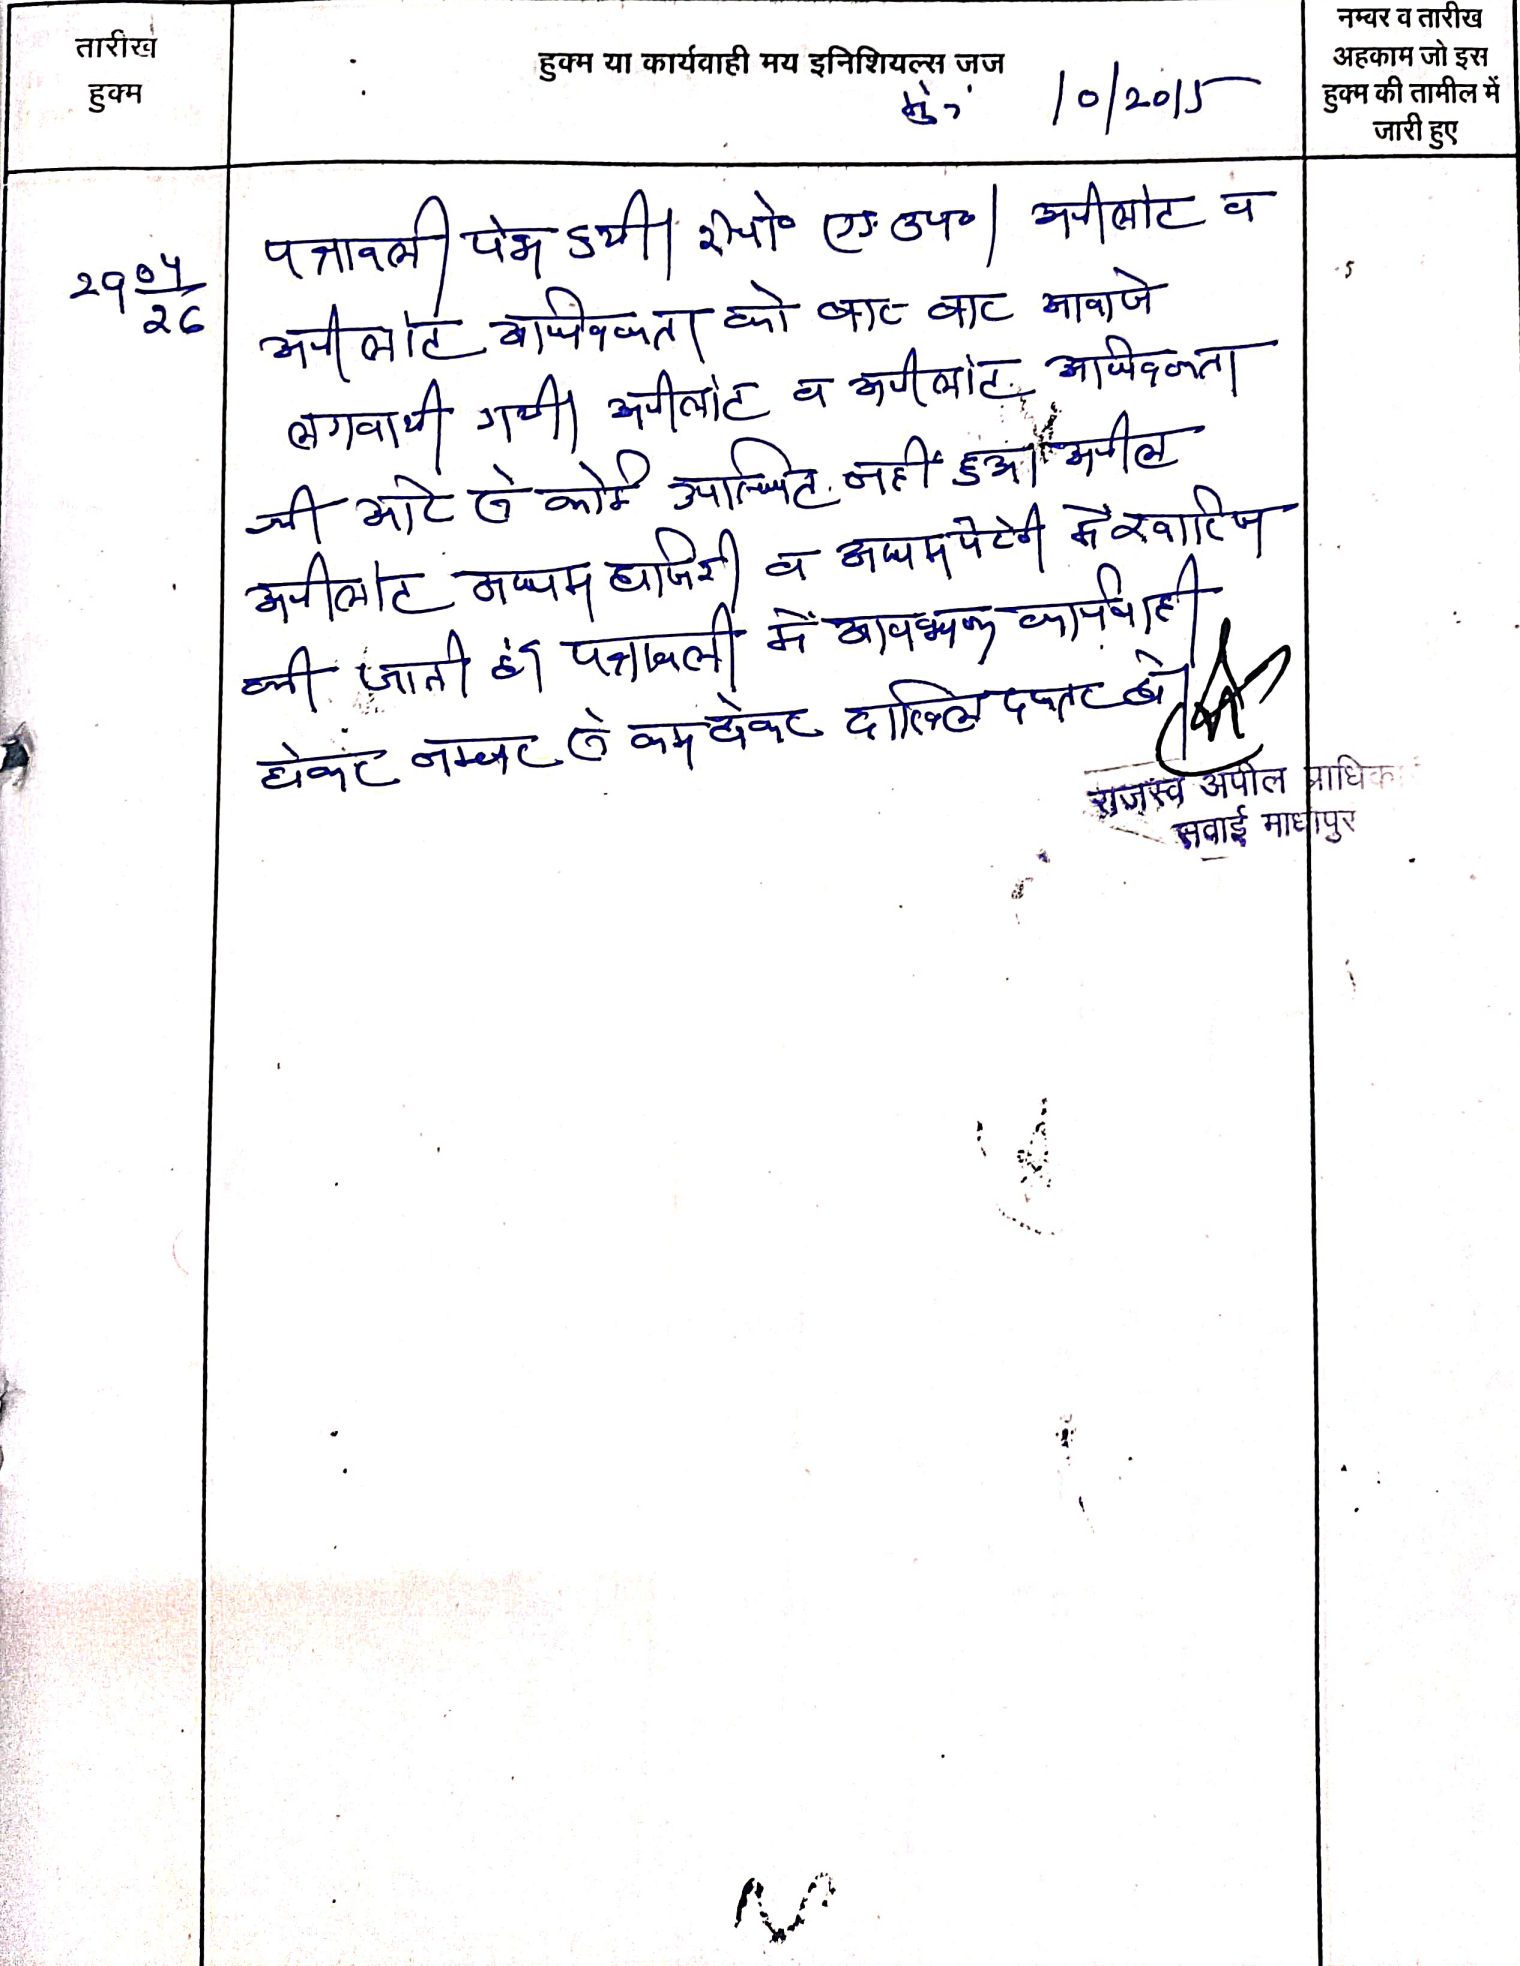 तारीख
हुक्म
हुक्म या कार्यवाही मय इनिशियल्स जज
10/2015
नम्बर व तारीख
अहकाम जो इस
हुक्म की तामील में
जारी हुए
29 04/26
पत्रावली पेश हुयी। रीडर उप०। अपीलांट व
अपीलांट अधिवक्ता को बार बार आवाजे
लगवायी गयी। अपीलांट व अपीलांट अधिवक्ता
की ओर से कोई उपस्थित नहीं हुआ। अपील
अपीलांट अदम हाजिरी व अदम पैरवी में खारिज
की जाती है। पत्रावली में आवश्यक कार्यवाही
होकर नम्बर से कम होकर दाखिल दफ्तर हो।
राजस्व अपील प्राधिका
सवाई माधोपुर